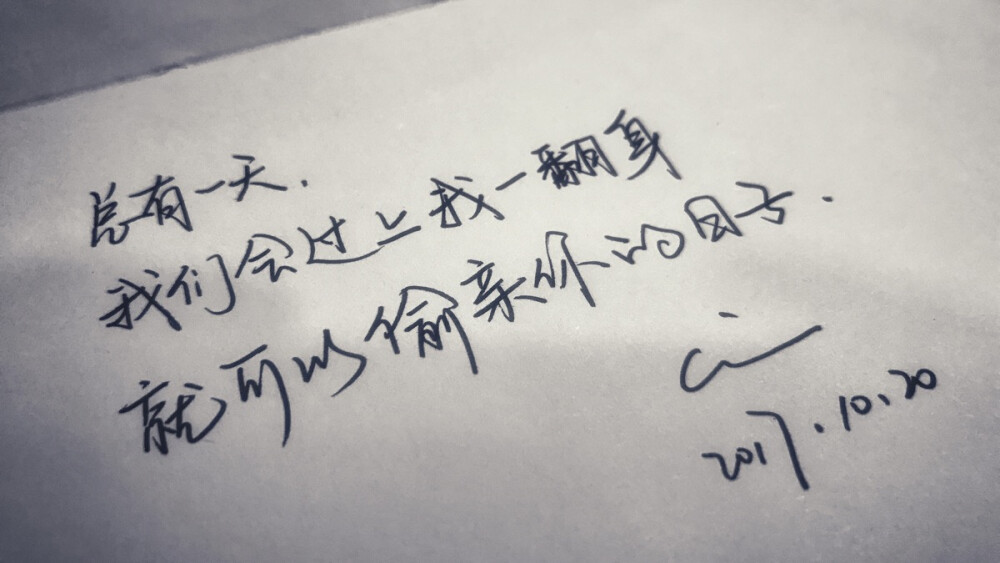 总有一天.
我们会过上我一翻身
就可以偷亲你的日子.
2017.10.20